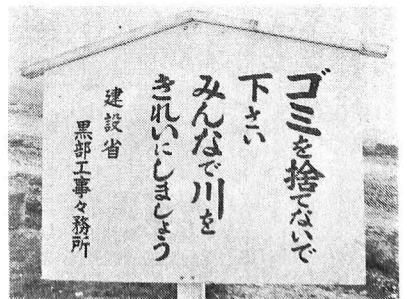 ゴミを捨てないで
下さい
みんなで川を
きれいにしましょう
建設省
黒部工事々務所